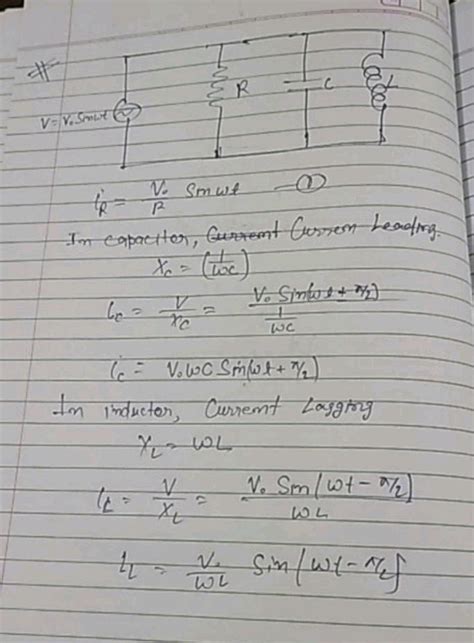 R
C
L
V = V₀ Sinωt
i_R = V₀/R Sinωt —①
In capacitor, Current Leading.
X_C = (1/ωC)
i_C = V/X_C = V₀ Sin(ωt + π/2) / (1/ωC)
i_C = V₀ωC Sin(ωt + π/2)
In inductor, Current Lagging
X_L = ωL
i_L = V/X_L = V₀ Sin(ωt − π/2) / ωL
i_L = V₀/ωL Sin(ωt − π/2)